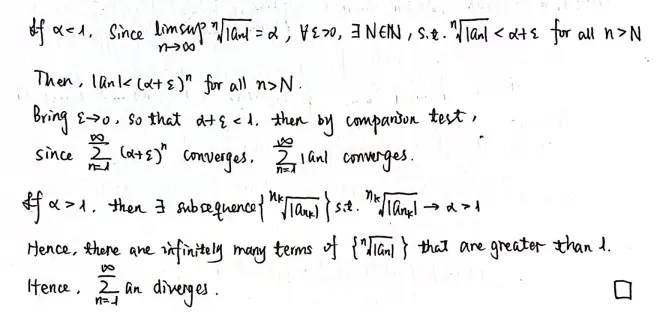 If α<1. Since limsup_{n→∞} ⁿ√|an| = α, ∀ε>0, ∃N∈ℕ, s.t. ⁿ√|an| < α+ε for all n>N
Then, |an|<(α+ε)ⁿ for all n>N.
Bring ε→0, so that α+ε<1. then by comparison test,
since ∑_{n=1}^{∞} (α+ε)ⁿ converges. ∑_{n=1}^{∞} |an| converges.
If α>1. then ∃ subsequence {ⁿᵏ√|an_k|} s.t. ⁿᵏ√|an_k| → α>1
Hence, there are infinitely many terms of {ⁿ√|an|} that are greater than 1.
Hence, ∑_{n=1}^{∞} an diverges. □